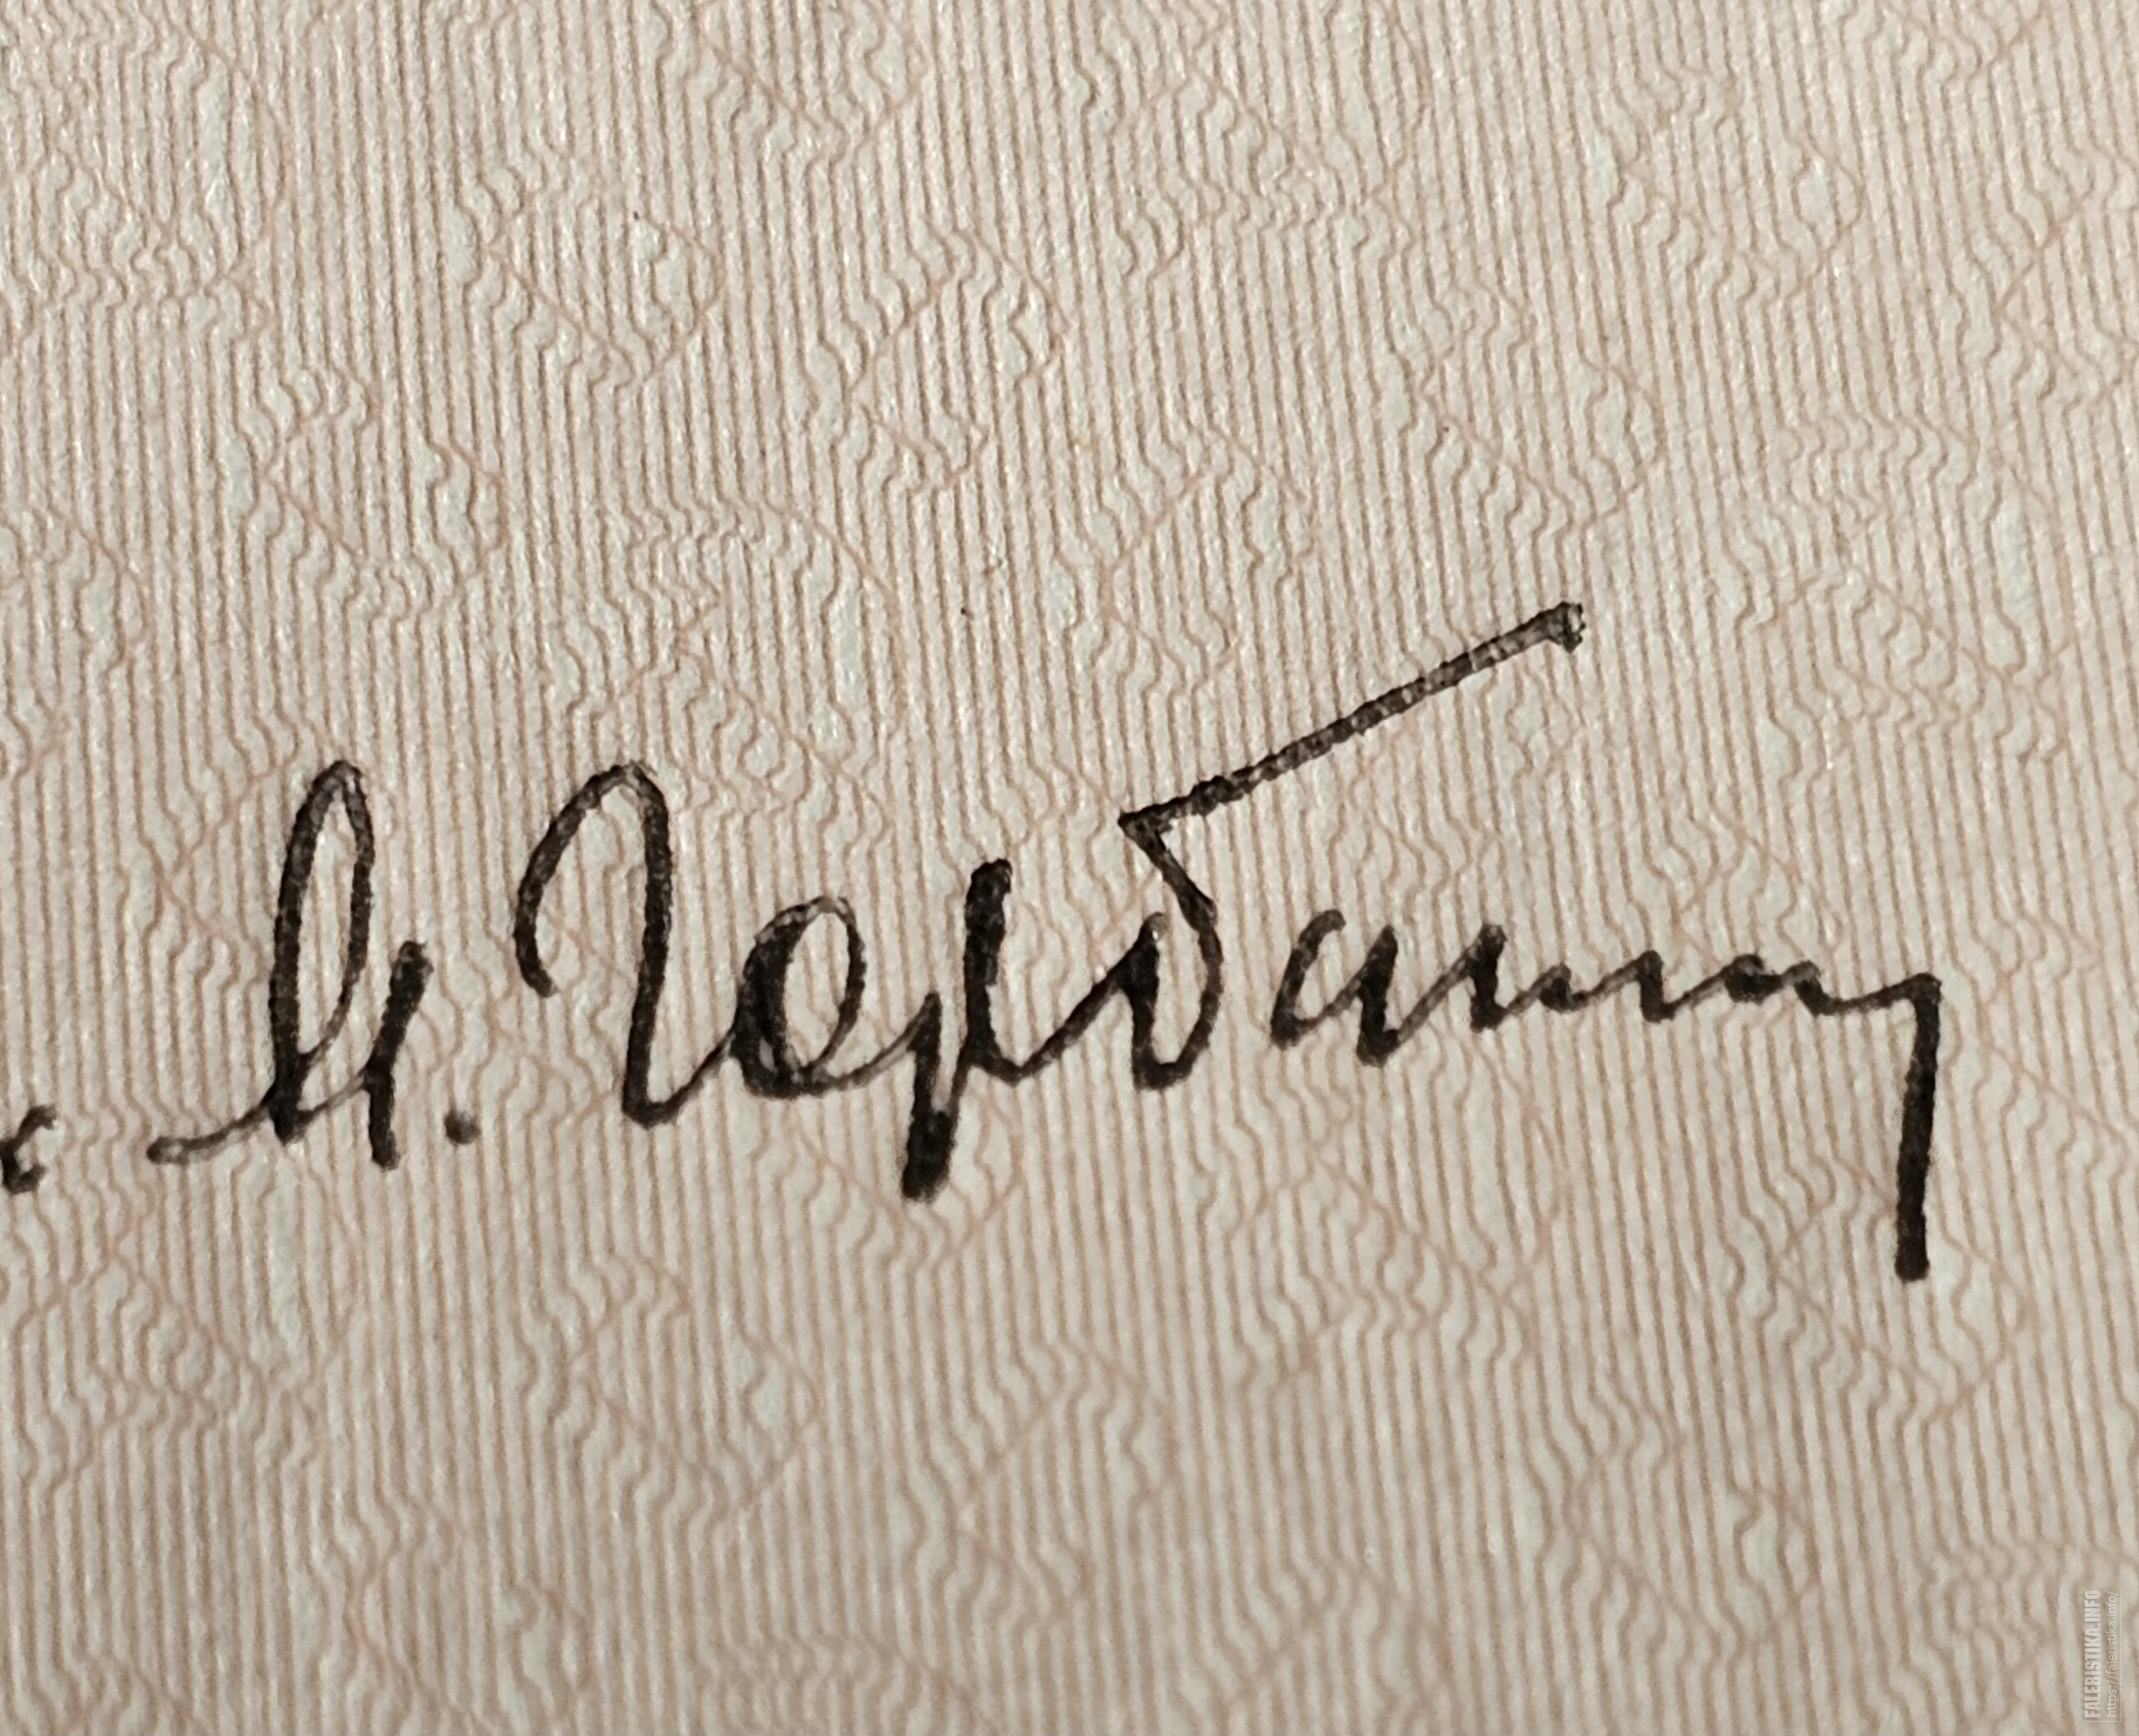 И. Горбачи
FALERISTIKA.INFO
https://faleristika.info/